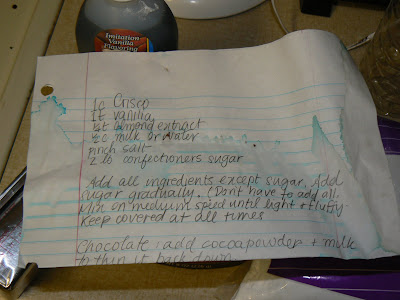 Imitation
Vanilla
Flavoring
1c Crisco
1t vanilla
½t almond extract
½c milk or water
pinch salt
2 lb confectioners sugar
Add all ingredients except sugar. Add
sugar gradually. (Don't have to add all.
Mix on medium speed until light + fluffy.
Keep covered at all times
Chocolate: add cocoa powder + milk
to thin it back down